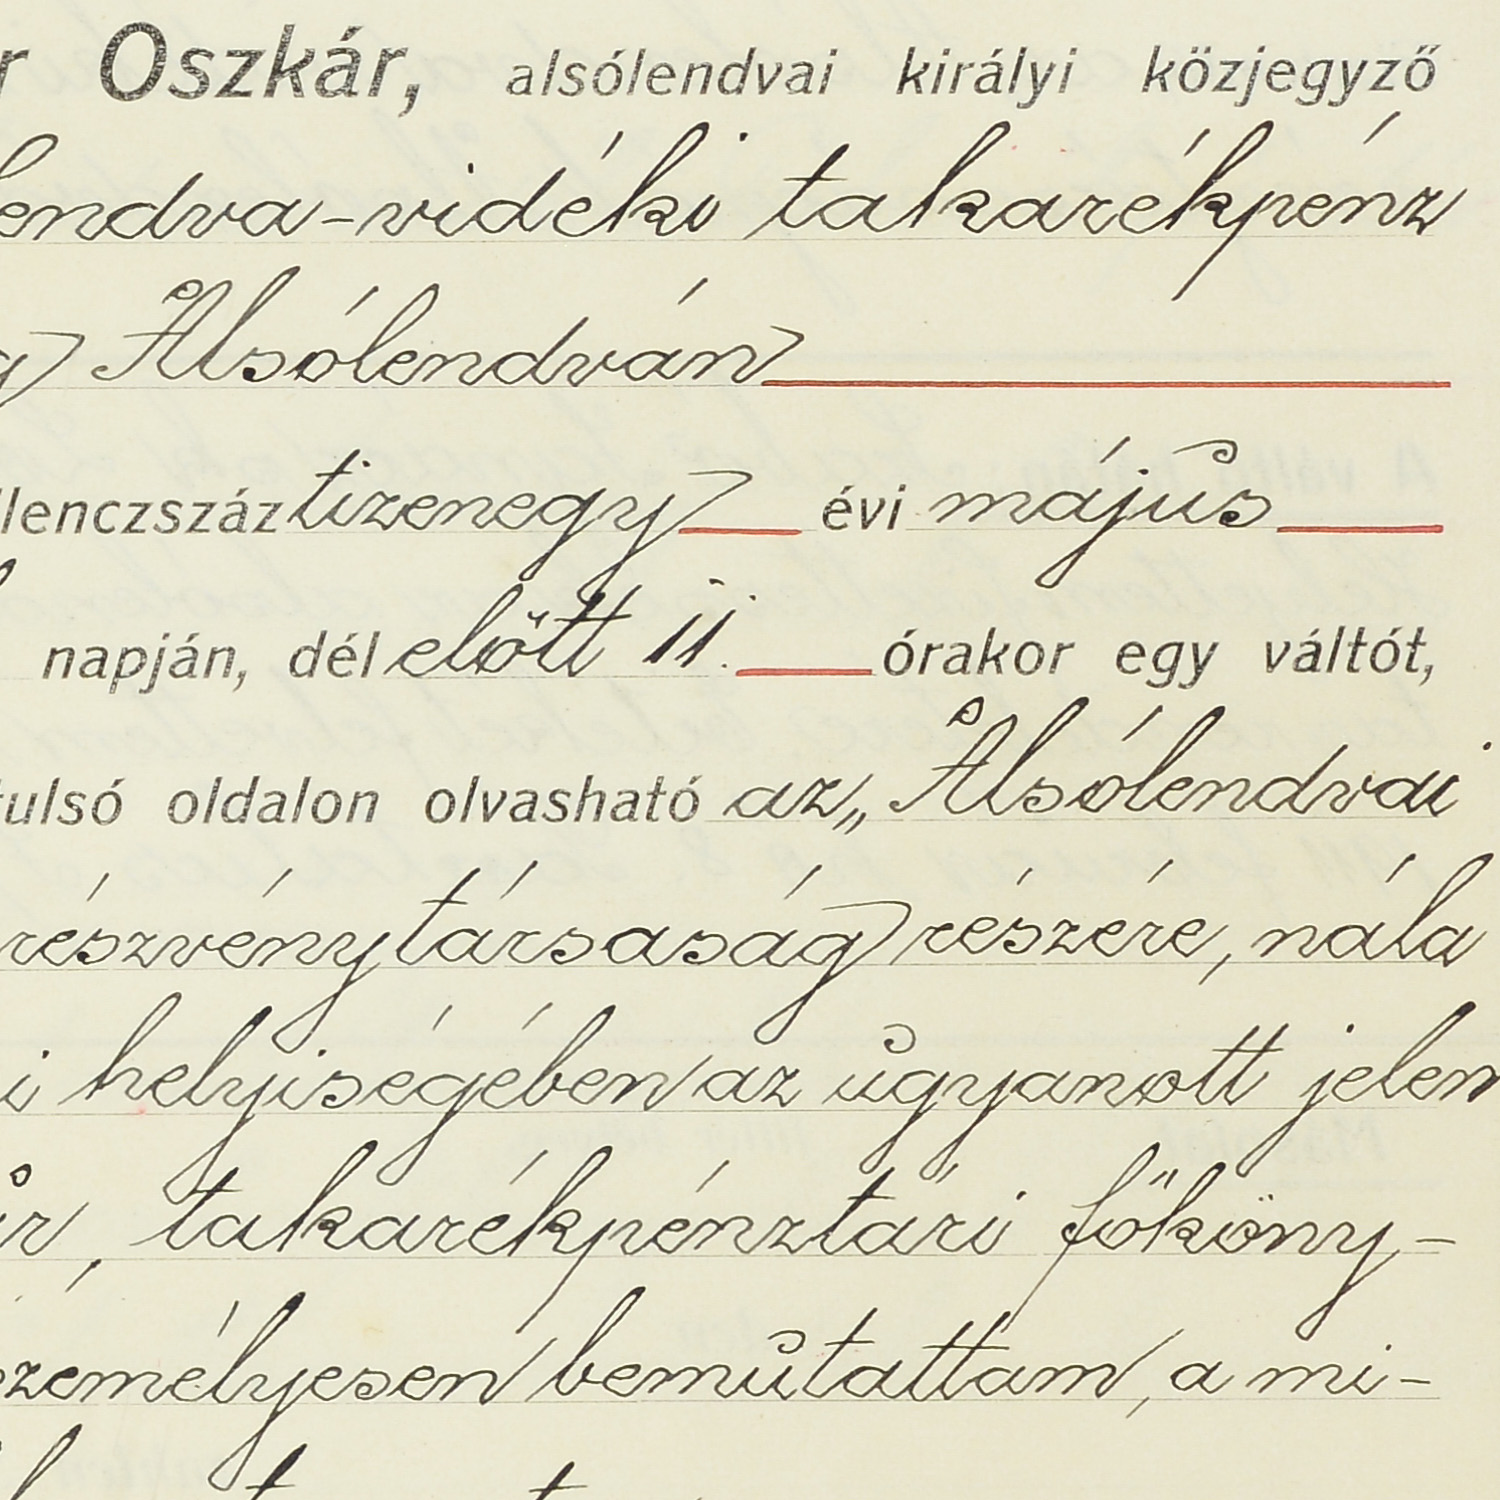 r Oszkár, alsólendvai királyi közjegyző
lendva-vidéki takarékpénz
g Alsólendván
llenczszáz tizenegy évi május
napján, dél előtt 11. órakor egy váltót,
tulsó oldalon olvasható az „Alsólendvai
részvénytársaság részére, nála
i helyiségében az ugyanott jelen
úr, takarékpénztári főköny-
személyesen bemutattam, a mi-